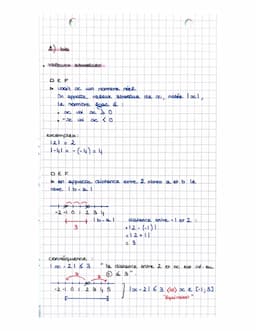 2) bis
• valeurs absolues
D E F
↳ soit x un nombre réel.
On appelle valeur absolue de x, notée |x|,
le nombre égal à :
• x si x ≥ 0
• -x si x < 0
exemples :
|2| = 2
|-4| = -(-4) = 4
D E F
↳ on appelle distance entre 2 réels a et b le
réel |b-a|
-2 -1 0 1 2 3 4
|b-a|
3
distance entre -1 et 2 :
|2-(-1)|
= |2+1|
= 3
conséquence :
|x-2| ≤ 3 " la distance entre 2 et x est
≤ 3 "
-2 -1 0 1 2 3 4 5
|x-2| ≤ 3 (⇔) x ∈ [-1;5]
"équivaut"